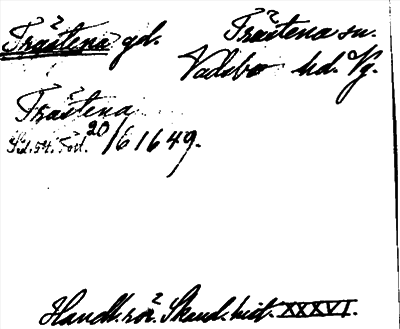 Trästena gd.
Trästena sn.
Vadsbo hd. Vg.
Trästena
20/6 1649.
Handl. rör. Skand. hist. XXXVI.